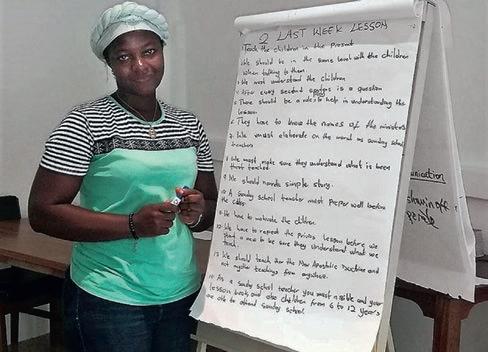 2 LAST WEEK LESSON
1 Teach the children in the present
We should be in the same level with the children
when talking to them.
We must understand the children
After every second is a question
There should be a role to help in understanding the
lesson
6 They have to know the names of the ministers
7. We must elaborate on the words as sunday school
teachers
8 We must make sure they understand what is been
taught
9 We should simple story.
10 A Sunday school teacher must well before
the
11. We have to motivate the children.
12. We have to repeat the lesson before we
start a new to be sure they understand what we
13 We should teach the New Apostolic Doctrine and
not teachings from anywhere.
14 As a Sunday school teacher you must your
lesson book and also children from 6 to 12 years
are able to attend Sunday school